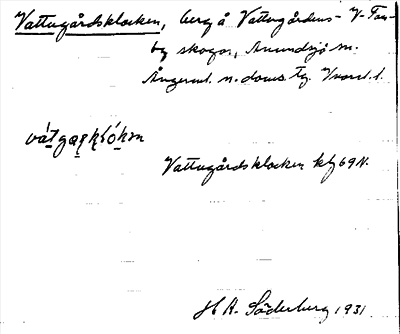 Vattugårdsklocken, berg å Vattugårdens- V-Tan-
by skogar, Anundsjö sn.
Ångerml. n. doms. Tg. Vnorrl. l.
Vattugårdsklocken kbl 69 N.
H A. Söderberg 1931